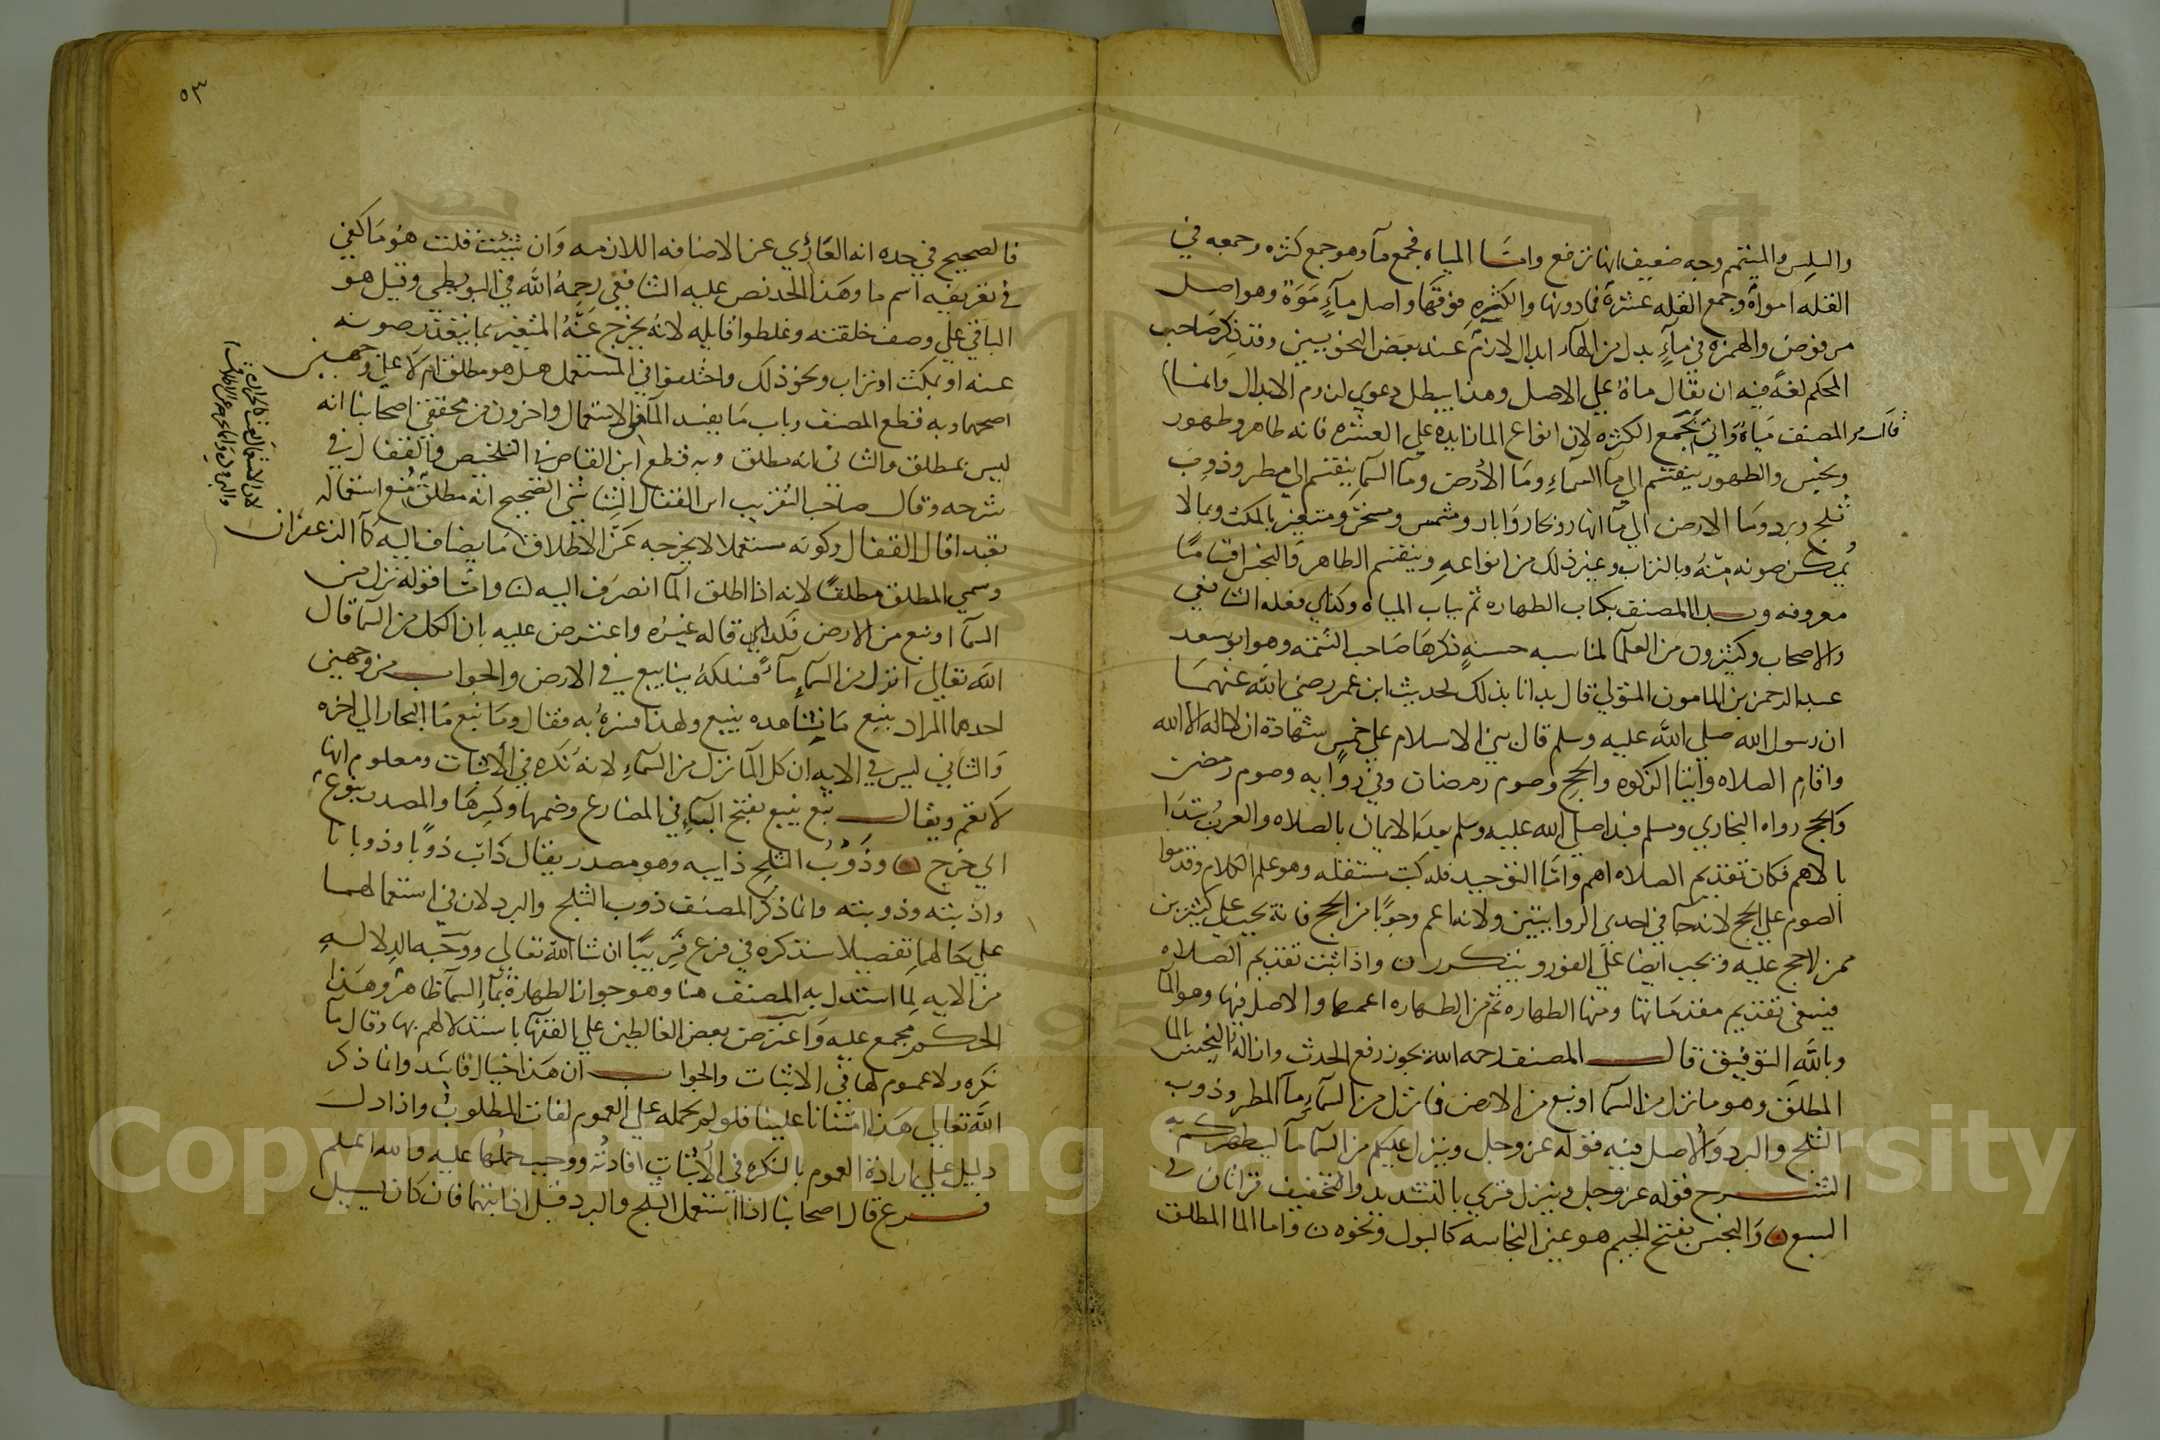 واللبس والمتيمم وجه ضعيف انها ترفع وامّا المياه فجمع مآ وهو جمع كثره وجمعه في
القله امواهٌ وجمع القله عشرة فمادونها والكثره فوقها واصل مآءٍ مَوَهٌ وهو اصل
مرفوض والهمزة في مآءٍ بدل من الهاء ابدال لازم عند بعض النحويين وقد ذكر صاحب
المحكم لغةً فيه ان يقال ماهٌ على الاصل وهذا يبطل دعوي لزوم الابدال وانما
قال المصنف مياهٌ واتي بجمع الكثره لان انواع الما زايده علي العشره فانه طاهر وطهور
ونجس والطهور ينقسم الي مآ السماءِ ومآ الأرض ومآ السما ينقسم الي مطر وذوب
ثلج وبرد ومآ الارض الي مآ انهار وبحار وابار ومشمس ومسخن ومتغير بالمكث وبما لا
يمكن صونه منهُ وبالتراب وغير ذلك من انواعه وينقسم الطاهر والنجس اقسامًا
معروفه وبدا المصنف بكتاب الطهاره ثم بباب المياه وكذلك فعله الشافعي
والاصحاب وكثيرون من العلما لمناسبه حسنةٍ ذكرها صاحب التتمه وهو ابو سعد
عبد الرحمن بن المامون المتولي قال بدانا بذلك لحديث ابن عمر رضي الله عنهما
ان رسول الله صلي الله عليه وسلم قال بني الاسلام علي خمسٍ شهادة ان لا اله الا الله
واقامِ الصلاه وايتا الزكوه والحجِ وصوم رمضان وفي روايه وصوم رمضن
والحج رواه البخاري ومسلم فبدا صلي الله عليه وسلم بعد الايمان بالصلاه والعربُ تبدا
بالاهم فكان تقديم الصلاه اهم وامّا التوحيد فله كتب مستقله وهو علم الكلام وقدموا
الصوم علي الحج لانه جا في احدي الروايتين ولانه اعم وجوبًا من الحج فانه يجب علي كثيرين
ممن لا حج عليه ويجب ايضا علي الفور ويتكرر ن واذا ثبت تقديم الصلاه
فينبغي تقديم مقدماتها ومنها الطهاره ثم من الطهاره اعمها والاصل فيها وهو المآ
وبالله التوفيق قال المصنف رحمه الله يجوز رفع الحدث وازالة النجس بالما
المطلق وهو ما نزل من السما او نبع من الارض فما نزل من السماء مآ المطر وذوب
الثلج والبرد والاصل فيه قوله عز وجل وينزل عليكم من السما مآ ليطهركم به
الشرح قوله عز وجل وينزل قري بالتشديد والتخفيف قراتان في
السبع ن والنجس بفتح الجيم هو عين النجاسه كالبول ونحوه ن واما الما المطلق
٥٣
فالصحيح في حده انه العاري عن الاضافه اللازمه وان شئت قلت هو ما كفي
في تعريفه اسم ما وهذا الحد نص عليه الشافعي رحمه الله في البويطي وقيل هو
الباقي علي وصف خلقته وغلطوا قايله لانه يخرج عنه المتغير بما يتعذر صونه
عنه او بمكث او تراب ونحو ذلك واختلفوا في المستعمل هل هو مطلق ام لا علي وجهين
اصحهما وبه قطع المصنف وباب ما يفسد الما من الاستعمال واخرون من محققي اصحابنا انه
ليس بمطلق والثاني انه مطلق وبه قطع ابن القاص في التلخيص والقفال في
شرحه وقال صاحب التقريب ابن القفال الشاشي الصحيح انه مطلق مُنع استعماله
تعبدا قال القفال وكونه مستعملا لا يخرجه عن الاطلاق
وسمي المطلق مطلقًا لانه اذا اطلق الما انصرف اليه ن وامّا قوله نزل من
السما او نبع من الارض فكذا قاله غيره واعترض عليه بان الكل من السما قال
الله تعالي انزل من السماءِ مآءً فسلكهُ ينابيع في الارض والجواب من وجهين
احدهما المراد ينبع ما نشاهده ينبع ولهذا فسرهُ به فقال وما نبع مآ البحار الي اخره
والثاني ليس في الايه ان كل المآ نزل من السماءِ لانه نكره في الاثبات ومعلوم انها
لا تعم ويقال نبع ينبع بفتح الباءِ في المضارع وضمها وكسرها والمصدر نبوع
اي خرج ن وذَوْبُ الثلج ذايبه وهو مصدر يقال ذاب ذوبًا وذوبانا
واذبته وذوبته وانما ذكر المصنف ذوب الثلج والبرد لان في استعمالهما
علي حالهما تفصيلا سنذكره في فرع قريبًا ان شا الله تعالي ووجه الدلاله
من الايه لما استدل به المصنف هنا وهو جواز الطهارة بمآء السما ظاهر وهذا
الحكم مجمع عليه واعترض بعض الغالطين علي الفقها باستدلالهم بها وقال مآ
نكره ولا عموم لها في الاثبات والجواب ان هذا خيال فاسد وانما ذكر
الله تعالي هذا امتنانا علينا فلو لم نحمله علي العموم لفات المطلوب واذا دل
دليل علي ارادة العموم بالنكره في الاثبات افادتهُ ووجب حملها عليه والله اعلم
فرع قال اصحابنا اذا استعمل الثلج والبرد قبل اذابتهما فان كان يسيل
ما يضاف اليه كمآ الزعفران